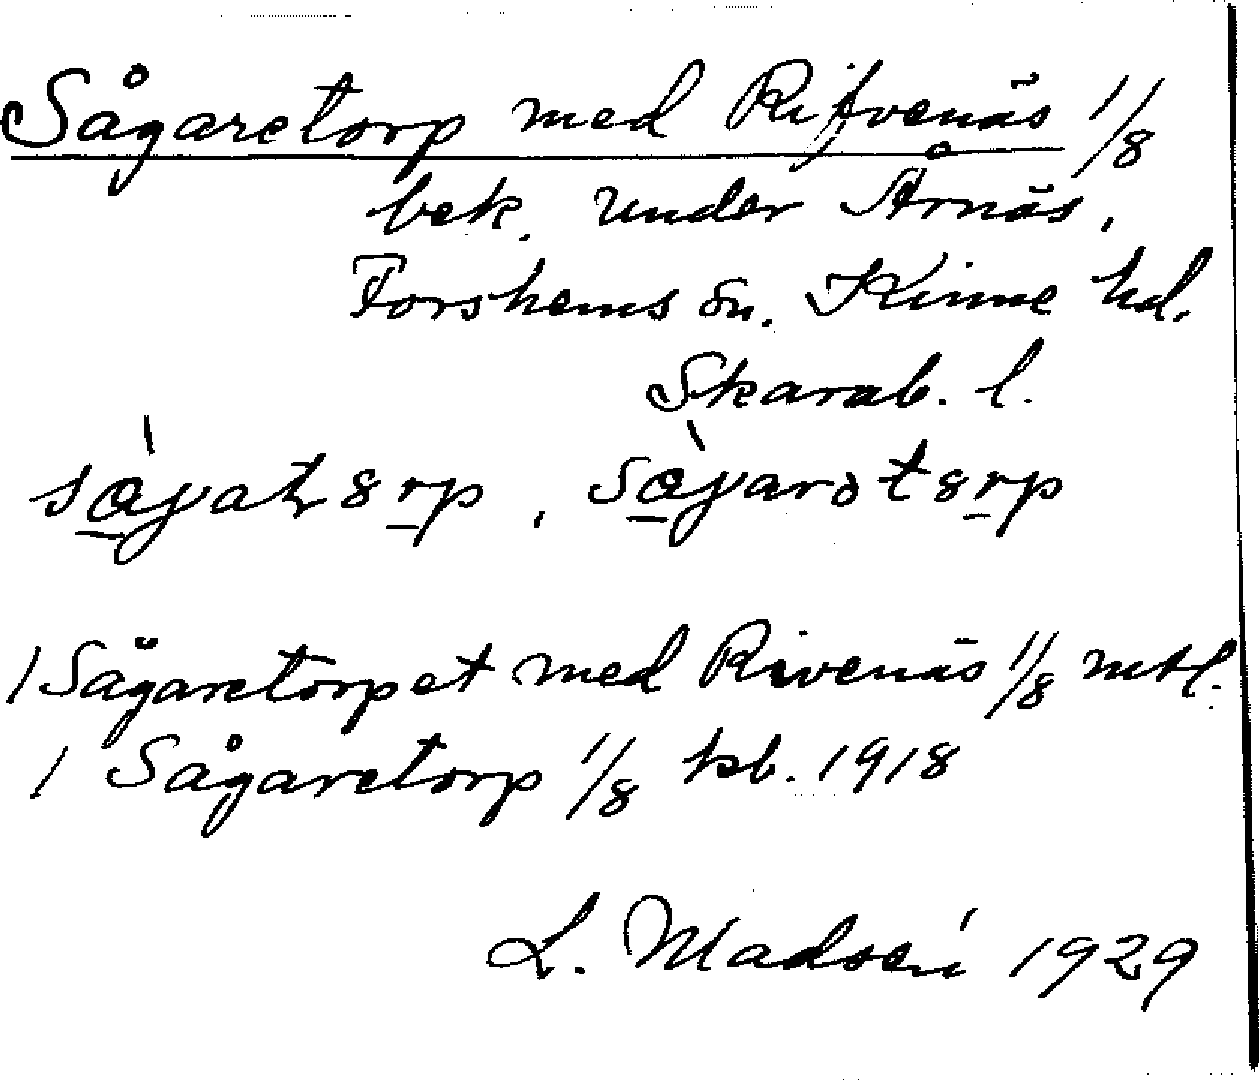 Sågaretorp med Rifvenäs 1/8
bek. under Årnäs,
Forshems sn. Kinne hd.
Skarab. l.
1 Sågaretorpet med Rivenäs 1/8 mtl.
1 Sågaretorp 1/8 kb. 1918
L. Madsén 1929